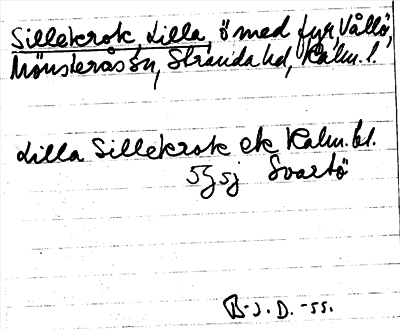 Sillekrok, Lilla, ö med fyr, Vållö,
Mönsterås sn, Stranda hd, Kalm. l.
Lilla Sillekrok ek Kalm. bl.
5g sj Svartö
B-J. D. -55.